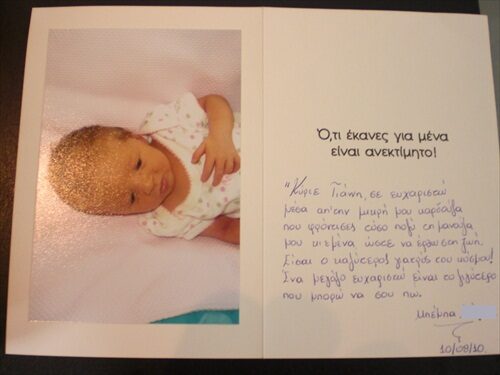 Ό,τι έκανες για μένα
είναι ανεκτίμητο!
"Κύριε Γιάννη, σε ευχαριστώ
μέσα απ'την μικρή μου καρδούλα
που φρόντισες τόσο πολύ τη μανούλα
μου κι εμένα ώστε να έρθω στη ζωή.
Είσαι ο καλύτερος γιατρός του κόσμου!
Ένα μεγάλο ευχαριστώ είναι το λιγότερο
που μπορώ να σου πω.
Μπέμπα
10/08/10